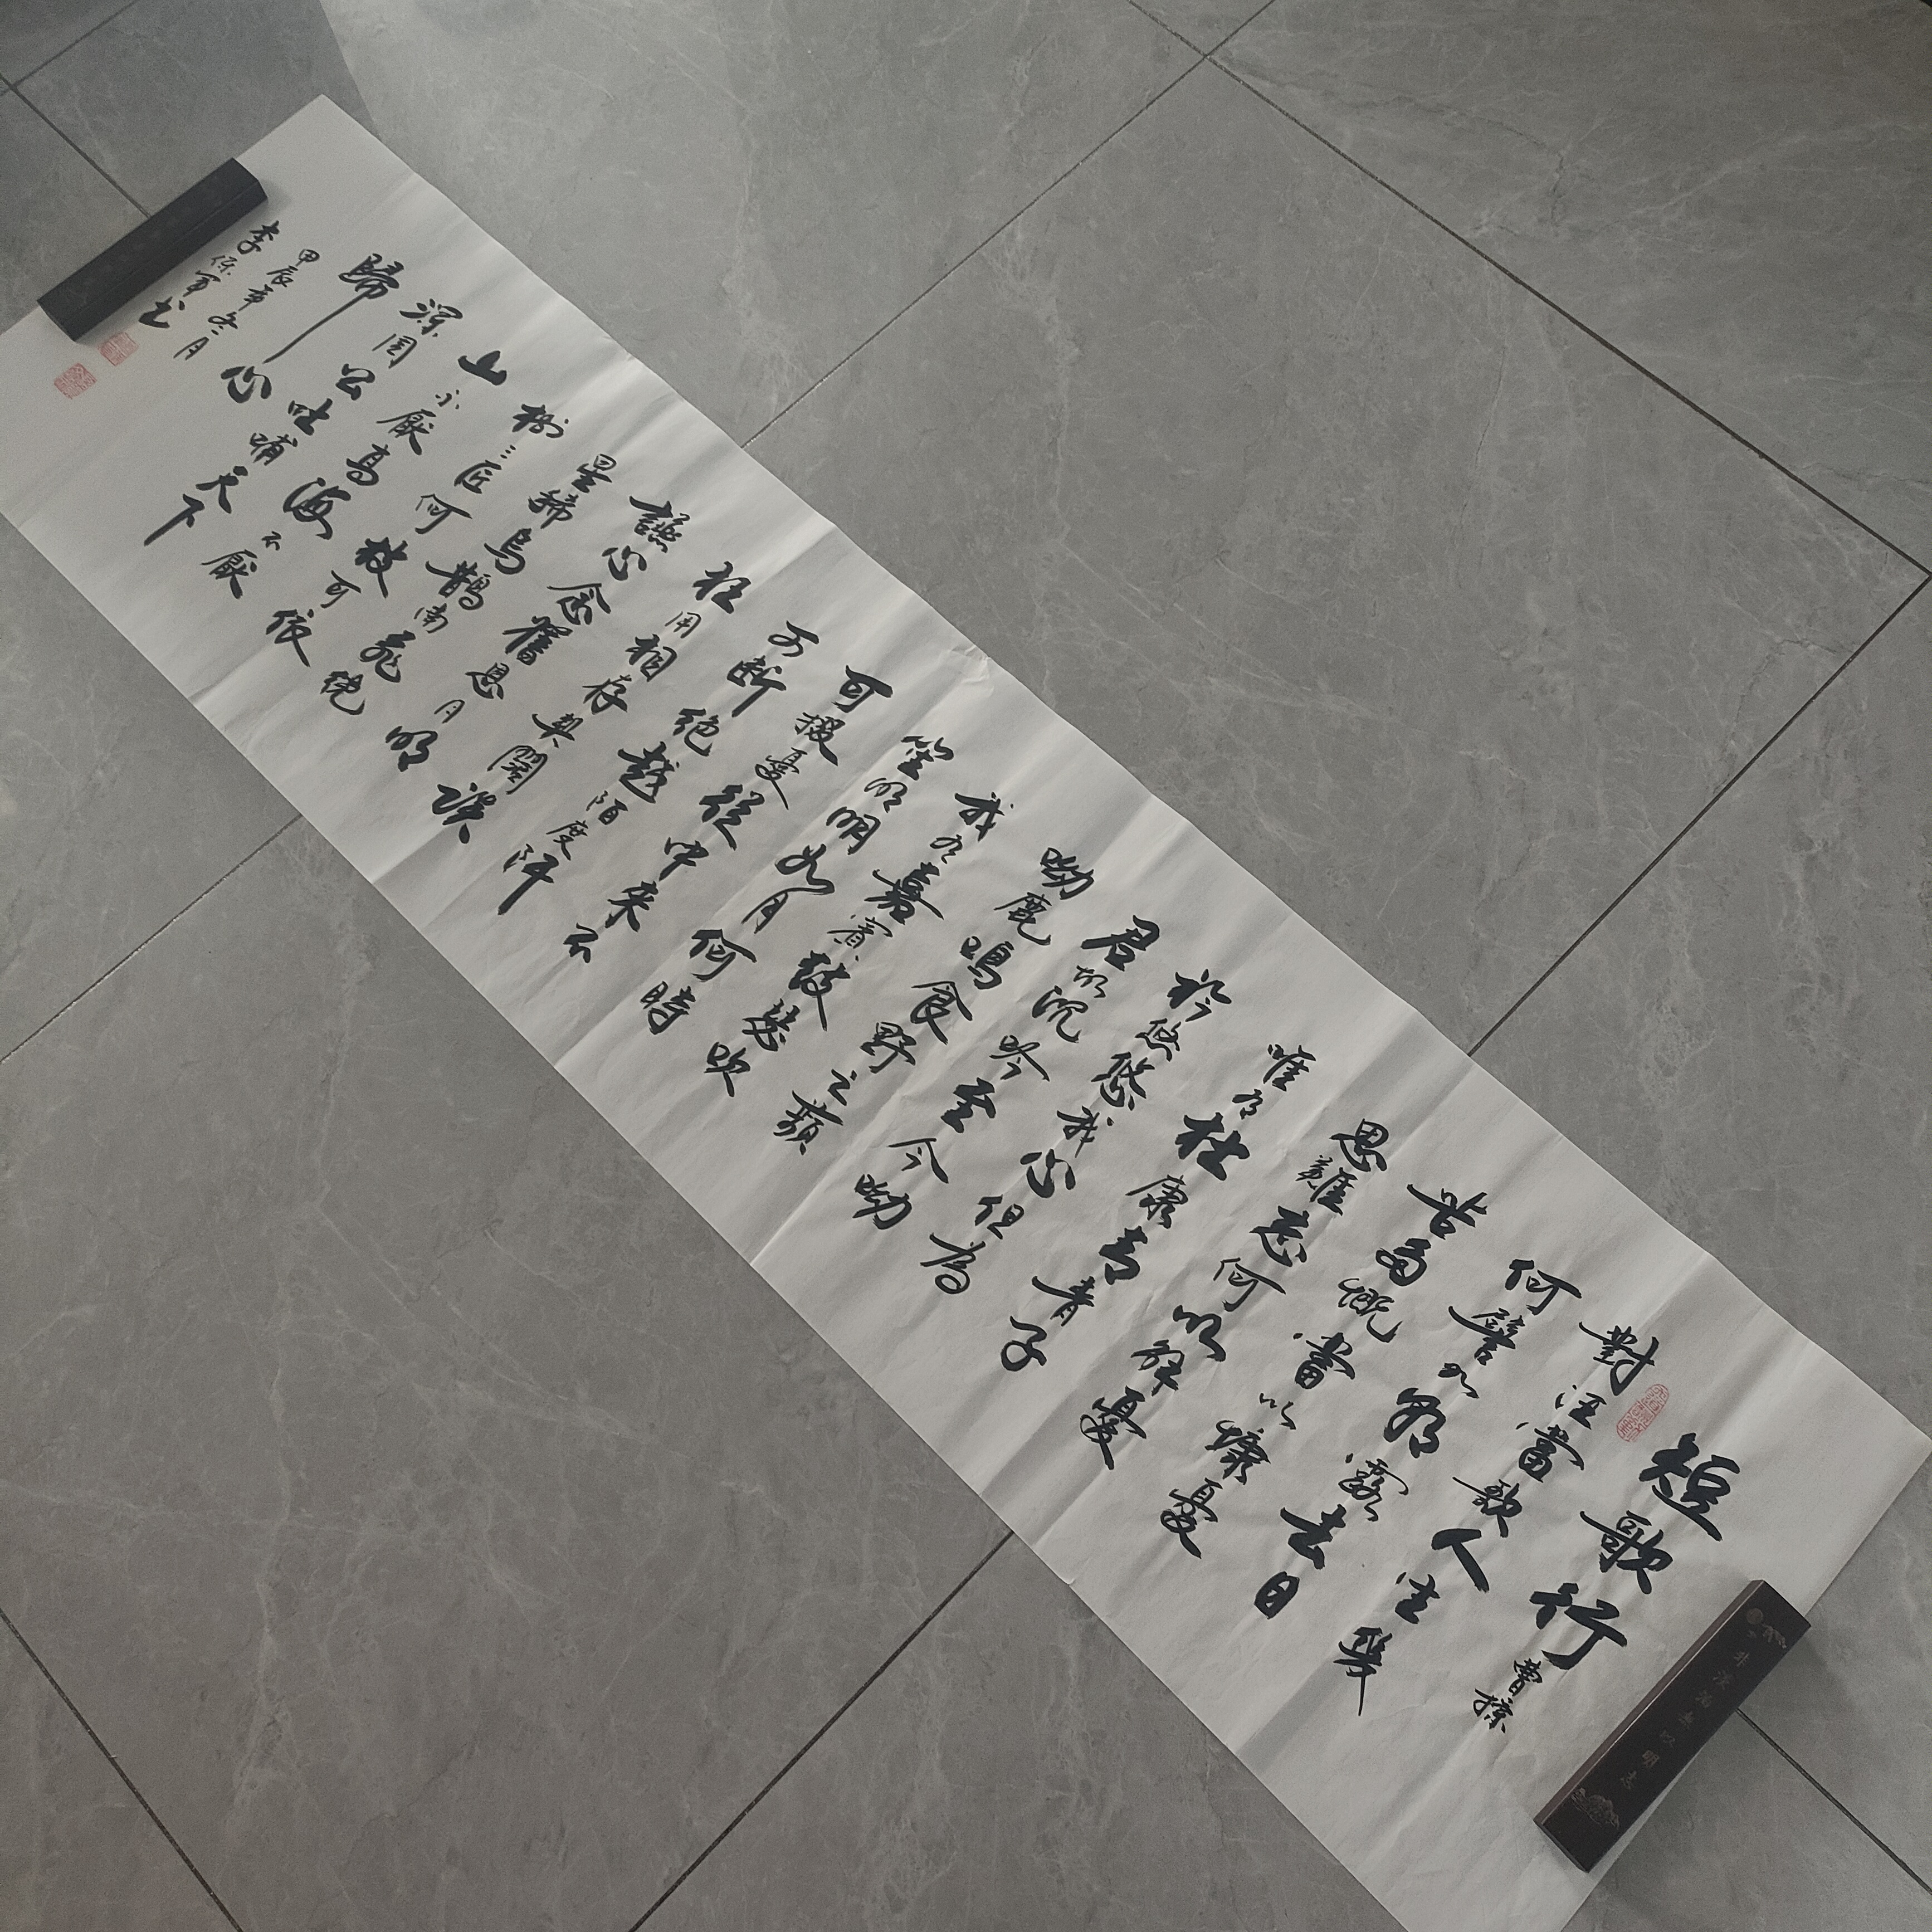 短歌行 曹操
對酒當歌人生幾
何譬如朝露去日
苦多慨當以慷憂
思難忘何以解憂
唯有杜康青青子
衿悠悠我心但為
君故沉吟至今呦
呦鹿鳴食野之蘋
我有嘉賓鼓瑟吹
笙明明如月何時
可掇憂從中來不
可斷絕越陌度阡
枉用相存契闊談
讌心念舊恩月明
星稀烏鵲南飛繞
樹三匝何枝可依
山不厭高海不厭
深周公吐哺天下
歸心
甲辰年冬月
李保军书
非淡泊無以明志